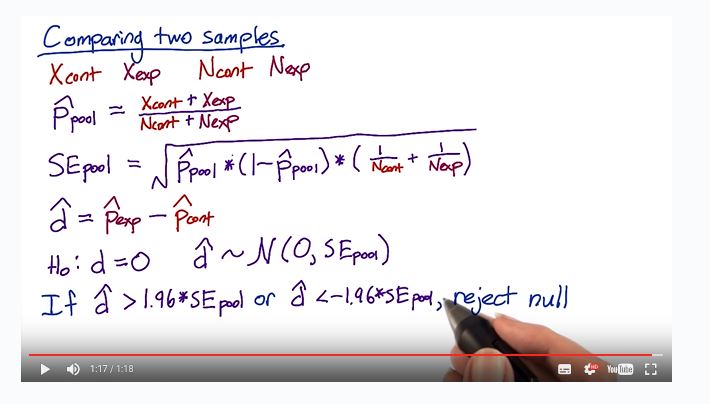 Comparing two samples
Xcont Xexp Ncont Nexp
p̂pool = (Xcont + Xexp) / (Ncont + Nexp)
SEpool = √(p̂pool * (1 - p̂pool) * (1/Ncont + 1/Nexp))
d̂ = p̂exp - p̂cont
H₀: d = 0 d̂ ~ N(0, SEpool)
If d̂ > 1.96*SEpool or d̂ < -1.96*SEpool, reject null
1:17 / 1:18 HD YouTube